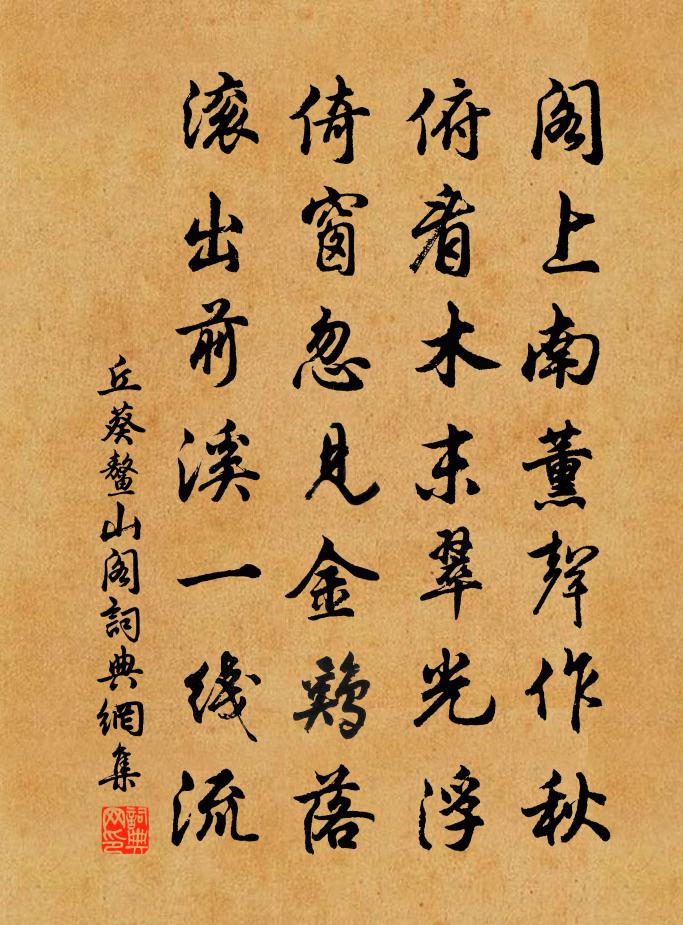 阁上南薰聲作秋
俯看木末翠光浮
倚窗忽见金鷄落
滚出前溪一线流
丘葵鳌山阁詞典網集
詞典网印